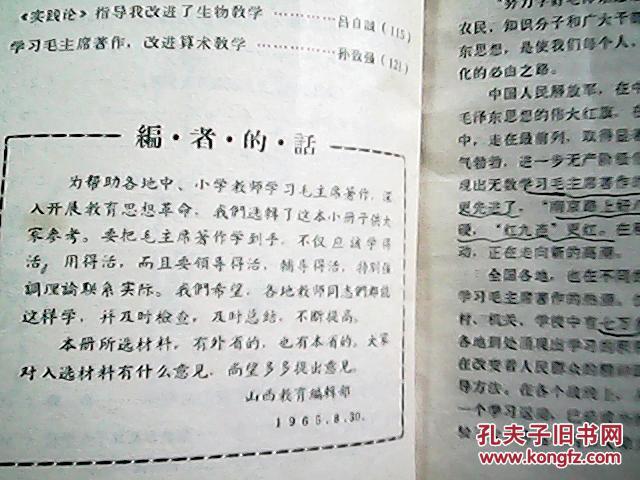 《实践论》指导我改进了生物教学 …………… 吕自誠(115)
学习毛主席著作，改进算术教学 …………… 孙致强(121)
編·者·的·話
为帮助各地中、小学教师学习毛主席著作，深
入开展教育思想革命，我們选輯了这本小册子供大
家参考。要把毛主席著作学到手，不仅应該学得
活，用得活，而且要領导得活，輔导得活，特别强
調理論联系实际。我們希望，各地教师同志們都能
这样学，并及时檢查，及时总结，不断提高。
本册所选材料，有外省的，也有本省的。大家
对入选材料有什么意见，尚望多多提出意见。
山西教育編輯部
1965.8.30.
农民，知识分子和广大干
东思想，是使我们每个人
化的必由之路。
中国人民解放军，在中
毛泽东思想的伟大红旗，在
中，走在最前列，取得显著
气勃勃，进一步无产阶级
现出无数学习毛主席著作的
更先进了，"南京路上好八
硬，"红九连"更红。在
动，正在走向新的高潮。
全国各地，也在不同
学习毛主席著作的热潮。
村、机关、学校中有七万
各地到处涌现出学习的积
在改变着人民群众的精神面
导方法。在各个战线上，
一个学习运动，已经
孔夫子旧书网
www.kongfz.com